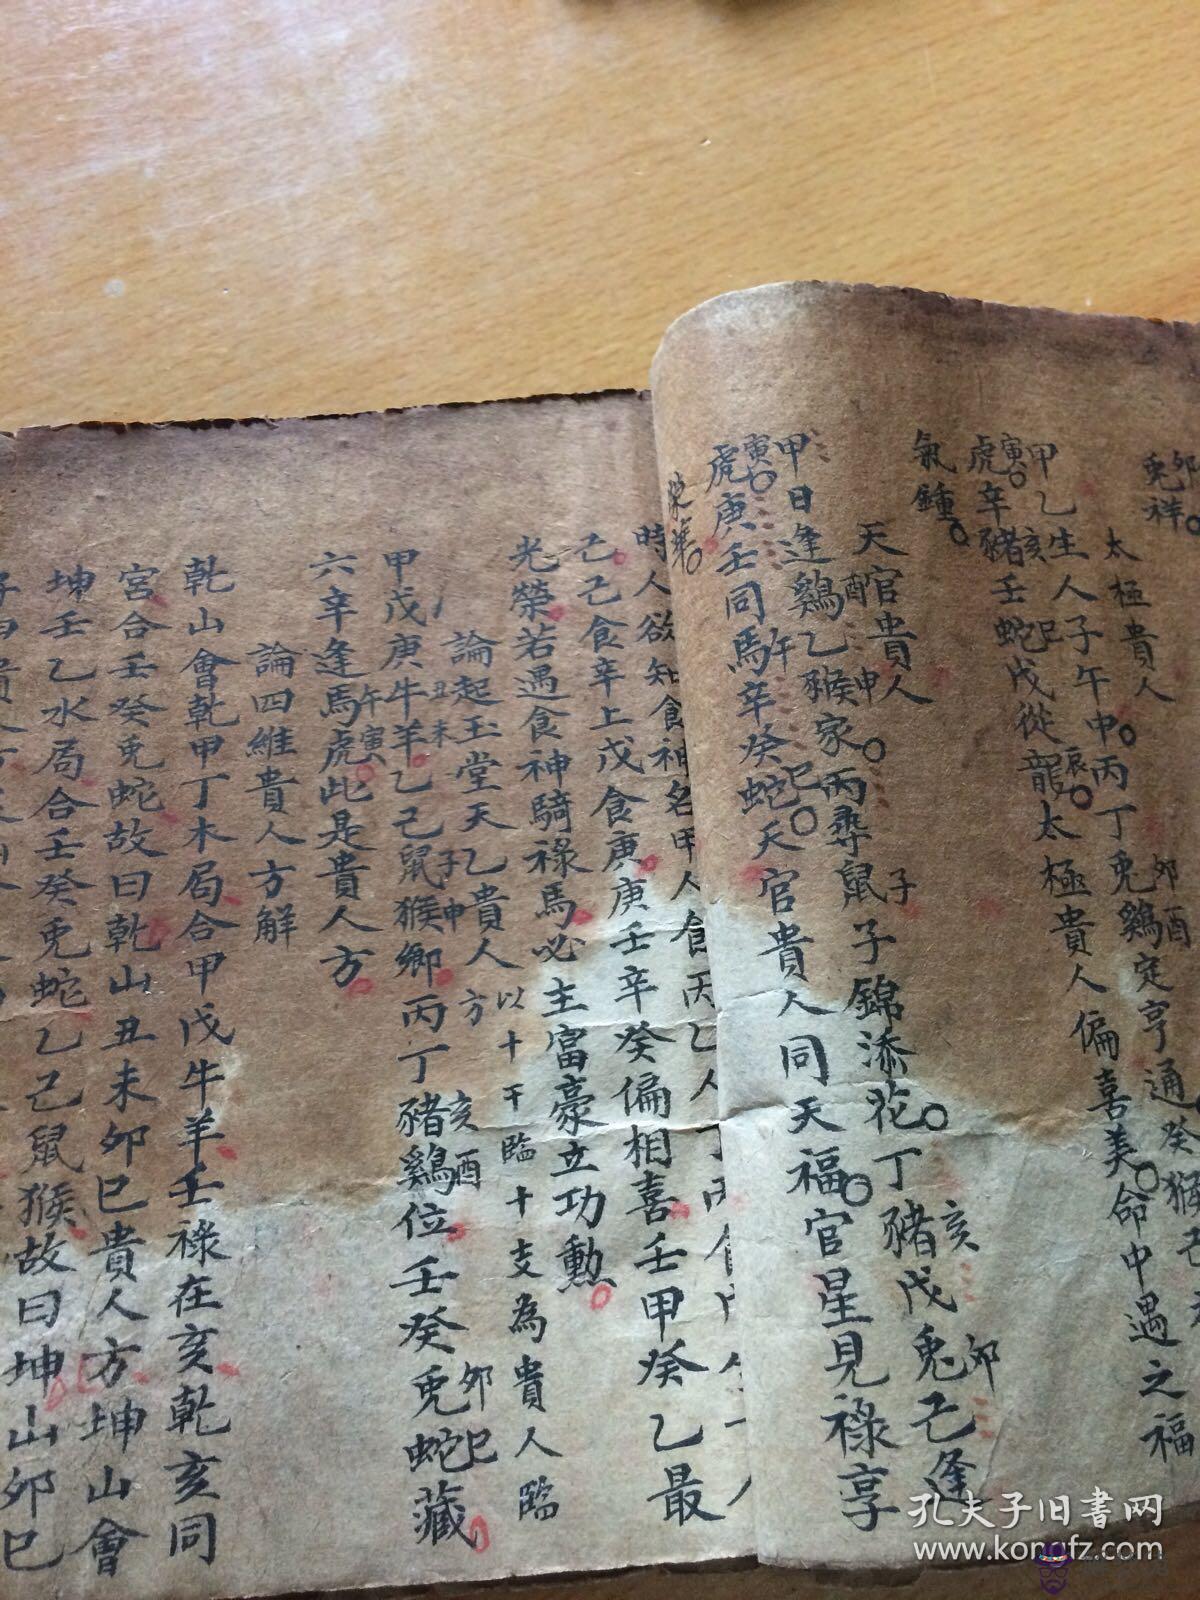 卯
兔祥
太極貴人
甲乙生人子午中丙丁兔鷄定亨通癸猴
卯酉
寅 亥 巳 辰
虎辛豬壬蛇戊從龍太極貴人偏喜美命中遇之福
氣鍾
天官貴人
酉 申 子 亥 卯
甲日逢鷄乙猴家丙尋鼠子錦添花丁豬戊兔己逢
寅 午 巳
虎庚壬同馬辛癸蛇天官貴人同天福官星見祿享
榮華
時人欲知食神名甲人食丙乙人
己己食辛上戊食庚庚壬辛癸偏相喜壬甲癸乙最
光榮若遇食神騎祿馬必主富豪立功勳
論起玉堂天乙貴人方 以十干臨十支為貴人臨
丑未 子申 亥酉 卯巳
甲戊庚牛羊乙己鼠猴鄉丙丁豬鷄位壬癸兔蛇藏
午寅
六辛逢馬虎此是貴人方
論四維貴人方解
乾山會乾甲丁木局合甲戊牛羊壬祿在亥乾亥同
宮合壬癸兔蛇故曰乾山丑未卯巳貴人方坤山會
坤壬乙水局合壬癸兔蛇乙己鼠猴故曰坤山卯巳
孔夫子旧书网
www.kongfz.com